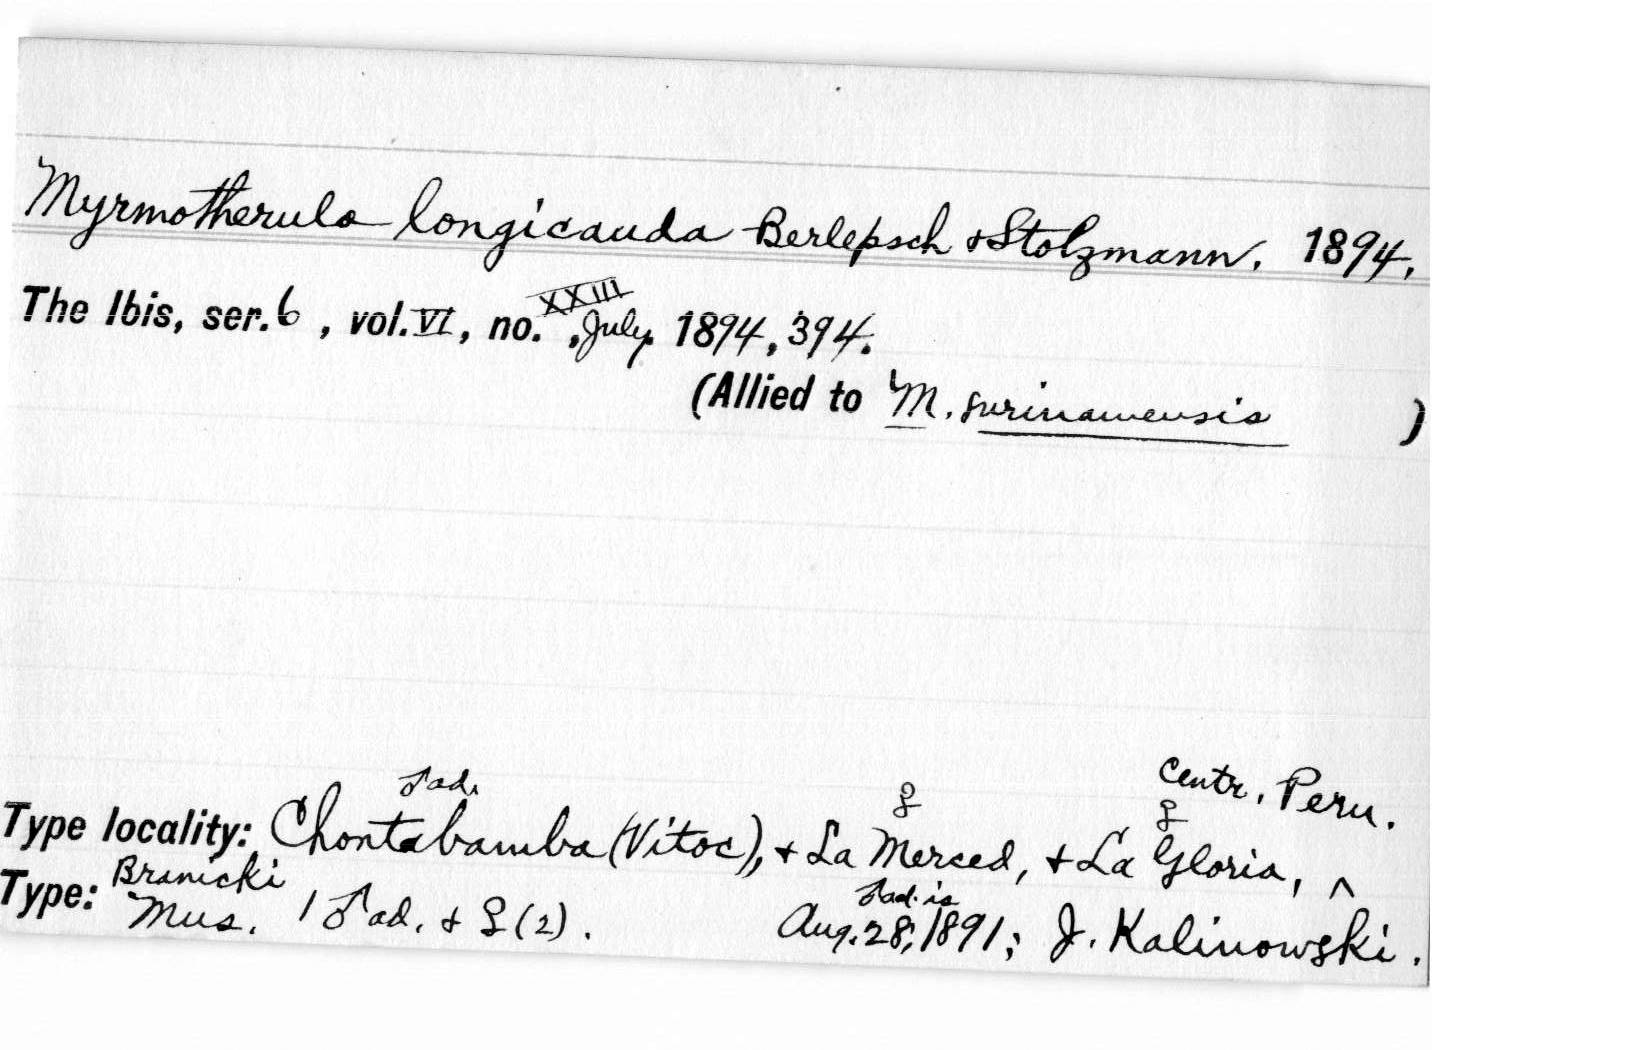 Myrmotherula longicauda Berlepsch & Stolzmann, 1894,
The Ibis, ser. 6, vol. VI, no. XXIII, July, 1894, 394.
(Allied to M. surinamensis )
centr. Peru.
♂ad. ♀ ♀
Type locality: Chontabamba (Vitoc), & La Merced, & La Gloria, ^
Type: Branicki Mus. 1 ♂ad. & ♀(2). Aug. 28, 1891; J. Kalinowski.
♂ad. is